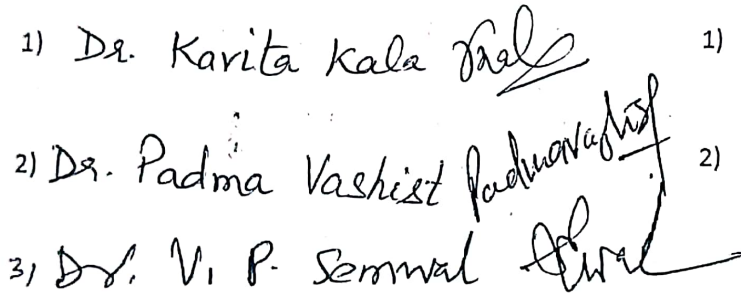 1) Dr. Kavita Kala 1)
2) Dr. Padma Vashist Padmavashist 2)
3) Dr. V. P. Semwal